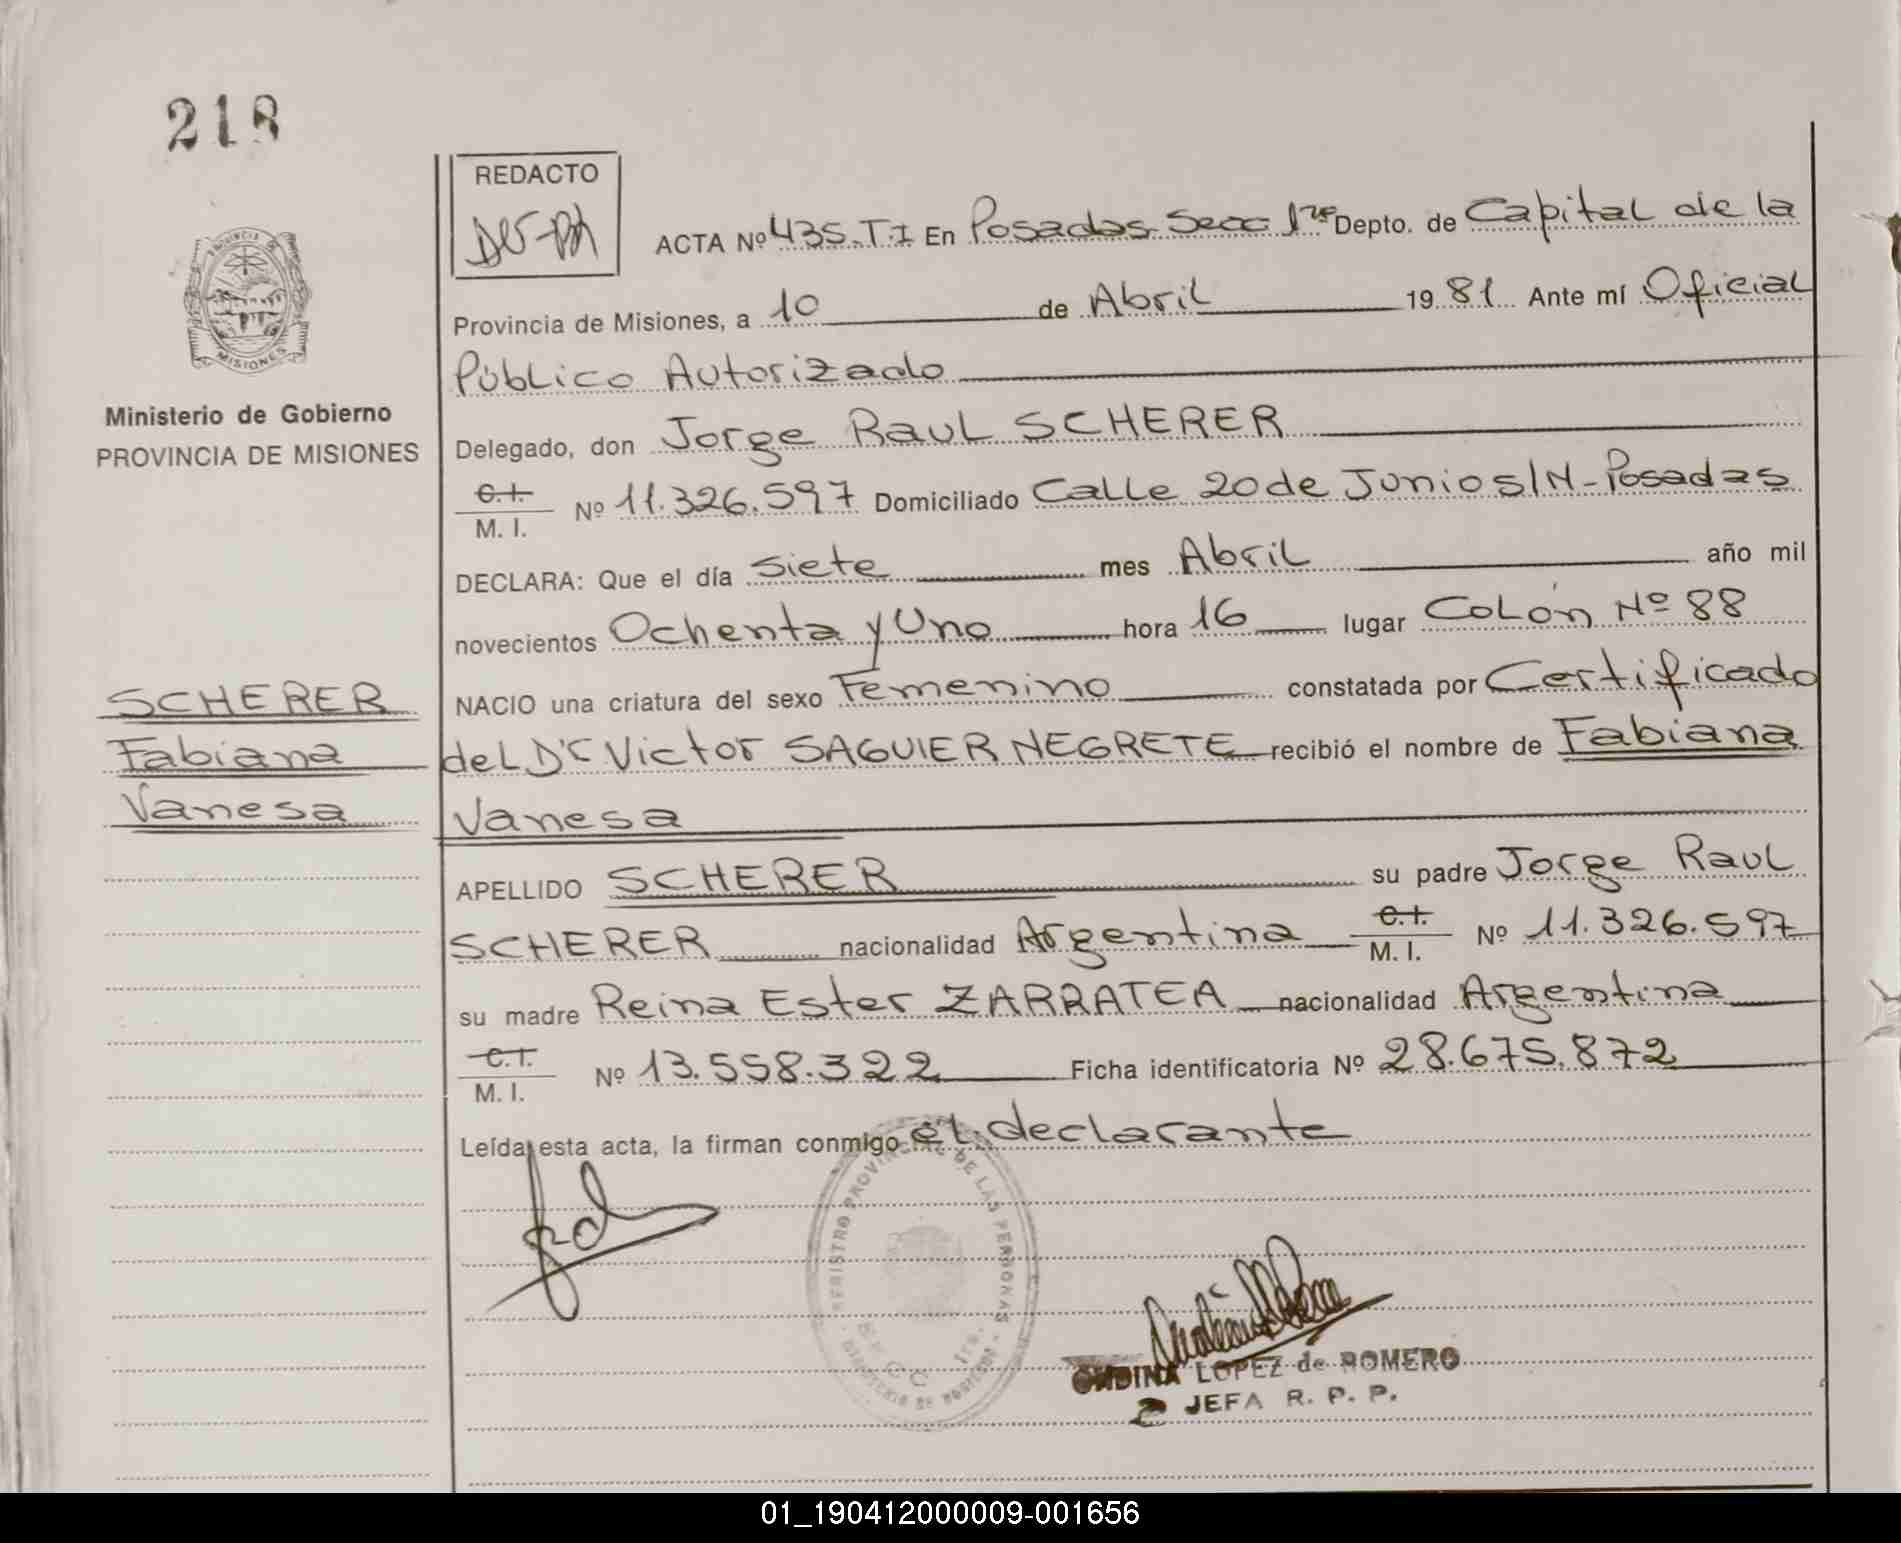 218
REDACTO
ACTA Nº 435.T.I En Posadas Secc 1ra Depto. de Capital de la
Provincia de Misiones, a 10 de Abril 1981 Ante mí Oficial
Público Autorizado
Delegado, don Jorge Raul SCHERER
C.I.
M. I. Nº 11.326.597 Domiciliado Calle 20 de Junio S/N - Posadas
DECLARA: Que el día siete mes Abril año mil
novecientos Ochenta y Uno hora 16 lugar Colón Nº 88
NACIO una criatura del sexo Femenino constatada por Certificado
del Dr Victor SAGUIER NEGRETE recibió el nombre de Fabiana
Vanesa
APELLIDO SCHERER su padre Jorge Raul
SCHERER nacionalidad Argentina C.I. M. I. Nº 11.326.597
su madre Reina Ester ZARRATEA nacionalidad Argentina
C.I.
M. I. Nº 13.558.322 Ficha identificatoria Nº 28.675.872
Leída esta acta, la firman conmigo el declarante
PROVINCIA DE
MISIONES
Ministerio de Gobierno
PROVINCIA DE MISIONES
SCHERER
Fabiana
Vanesa
REGISTRO PROVINCIAL DE LAS PERSONAS
SECC 1ra.
ONDINA LOPEZ de ROMERO
JEFA R. P. P.
01_190412000009-001656